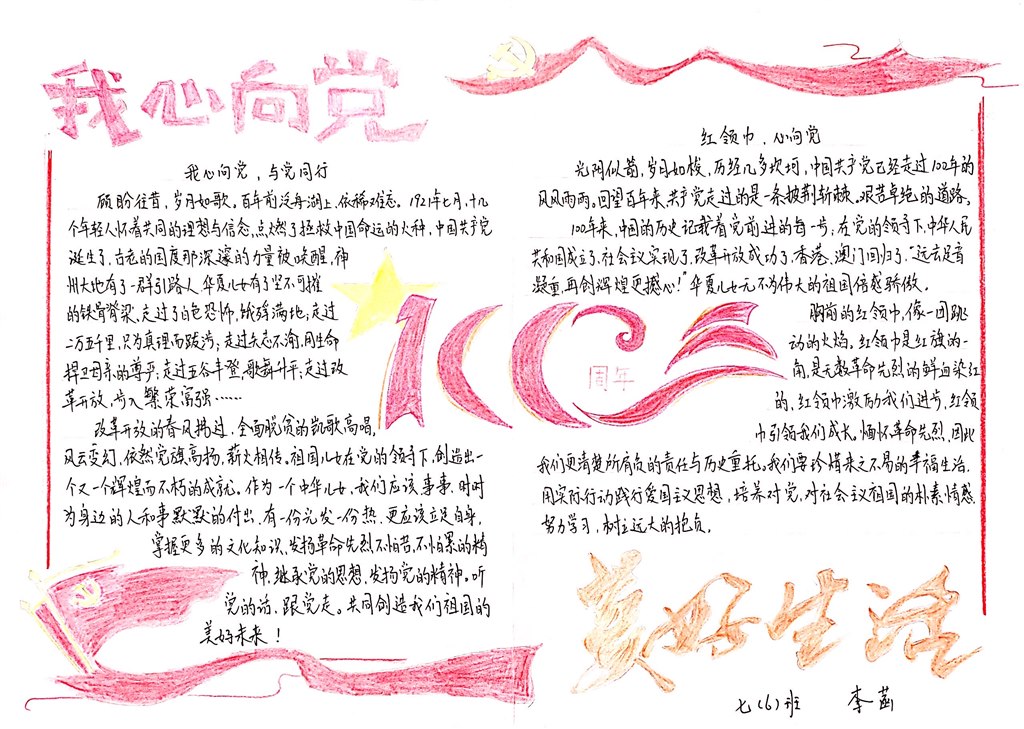 我心向党
我心向党，与党同行
顾盼往昔，岁月如歌。百年前泛舟湖上，依稀难忘。1921年七月，十几
个年轻人怀着共同的理想与信念，点燃了拯救中国命运的火种，中国共产党
诞生了，古老的国度那深邃的力量被唤醒，神
州大地有了一群引路人，华夏儿女有了坚不可摧
的铁骨脊梁，走过了白色恐怖，饿殍满地，走过
二万五千里，只为真理而跋涉；走过矢志不渝，用生命
捍卫母亲的尊严；走过五谷丰登，歌舞升平；走过改
革开放，步入繁荣富强……
改革开放的春风拂过，全面脱贫的凯歌高唱，
风云变幻，依然党旗高扬，薪火相传。祖国儿女在党的领导下，创造出一
个又一个辉煌而不朽的成就。作为一个中华儿女，我们应该事事，时时
为身边的人和事默默的付出，有一份光发一份热，更应该立足自身，
掌握更多的文化知识，发扬革命先烈不怕苦，不怕累的精
神，继承党的思想，发扬党的精神。听
党的话，跟党走。共同创造我们祖国的
美好未来！
100
周年
红领巾，心向党
光阴似箭，岁月如梭，历经几多坎坷，中国共产党已经走过102年的
风风雨雨，回望百年来，共产党走过的是一条披荆斩棘，艰苦卓绝的道路。
100年来，中国的历史记载着党前进的每一步；在党的领导下，中华人民
共和国成立了，社会主义实现了，改革开放成功了，香港、澳门回归了，“远去足音
凝重，再创辉煌更撼心！”华夏儿女无不为伟大的祖国倍感骄傲。
胸前的红领巾，像一团跳
动的火焰。红领巾是红旗的一
角，是无数革命先烈的鲜血染红
的，红领巾激励我们进步，红领
巾引领我们成长。缅怀革命先烈，因此
我们更清楚所肩负的责任与历史重托。我们要珍惜来之不易的幸福生活，
用实际行动践行爱国主义思想，培养对党，对社会主义祖国的朴素情感，
努力学习，树立远大的抱负。
美好生活
七(6)班 李菡